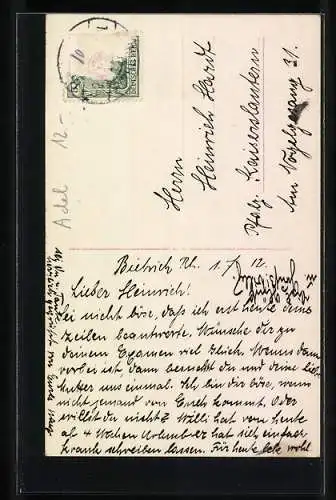 Adel 12-
Herrn
Heinrich Hardt
Pfalz. Kaiserslautern
Am Vogelgesang 31.
Biebrich Rh. 1. 12.
Lieber Heinrich!
Sei nicht böse, daß ich erst heute deine
Zeilen beantworte. Wünsche dir zu
deinem Examen viel Glück. Wenns dann
vorbei ist, dann besucht du und deine liebe
Mutter uns einmal. Ich bin dir böse, wenn
nicht jemand von Euch kommt. Oder
willst du nicht? Willi hat von heute
ab 4 Wochen Urlaub er hat sich einfach
krank schreiben lassen. Für heute lebe wohl